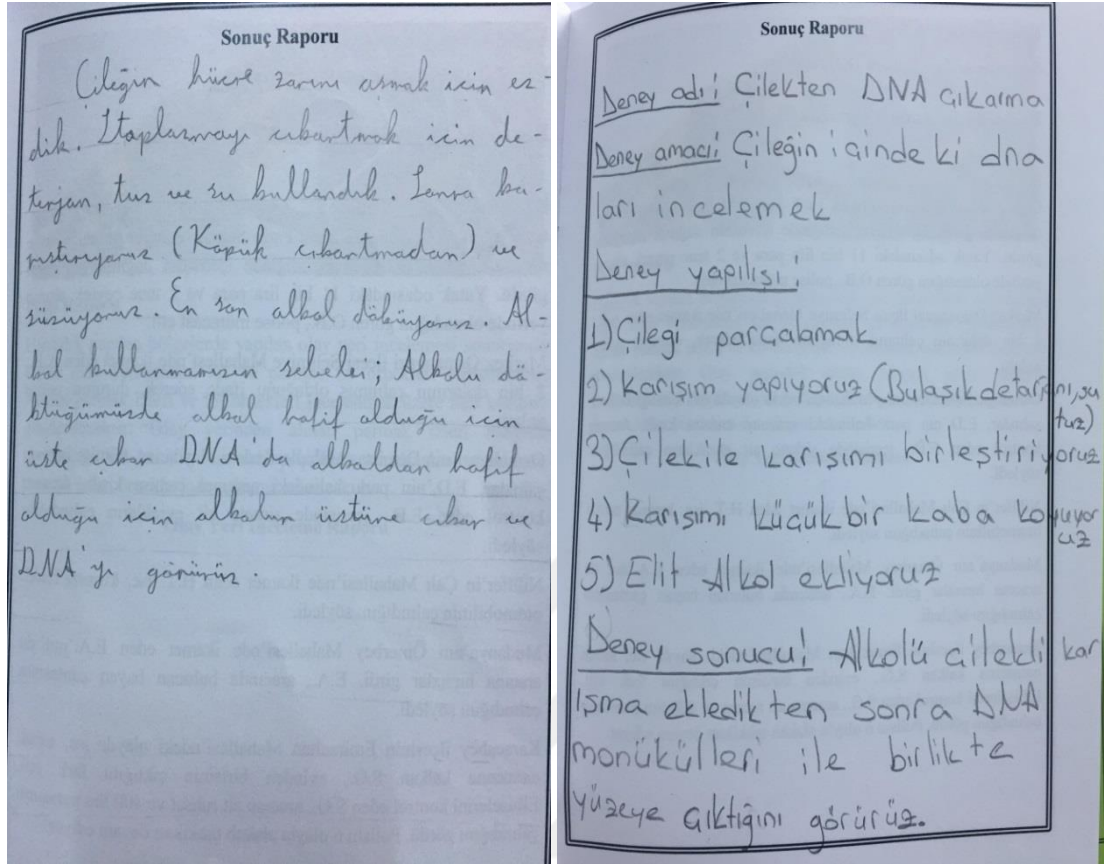 Sonuç Raporu
Çileğin hücre zarını aşmak için ez-
dik. Sitoplazmayı cıkartmak için de-
terjan, tuz ve su kullandık. Sonra ka-
rıştırıyoruz (Köpük cıkartmadan) ve
süzüyoruz. En son alkol döküyoruz. Al-
kol kullanmamızın sebebi; Alkolu dö-
ktüğümüzde alkol hafif olduğu için
üste cıkar DNA'da alkolden hafif
olduğu için alkolun üstüne cıkar ve
DNA'yı görürüz.
Sonuç Raporu
Deney adı: Çilekten DNA çıkarma
Deney amacı: Çileğin içindeki dna
ları incelemek
Deney yapılışı:
1) Çileği parçalamak
2) Karışım yapıyoruz (Bulaşık detarjanı, su
tuz)
3) Çilek ile karışımı birleştiriyoruz
4) Karışımı küçük bir kaba koyuyor
uz
5) Elit Alkol ekliyoruz
Deney sonucu: Alkolü çilekli kar
ışma ekledikten sonra DNA
monükülleri ile birlikte
yüzeye çıktığını görürüz.